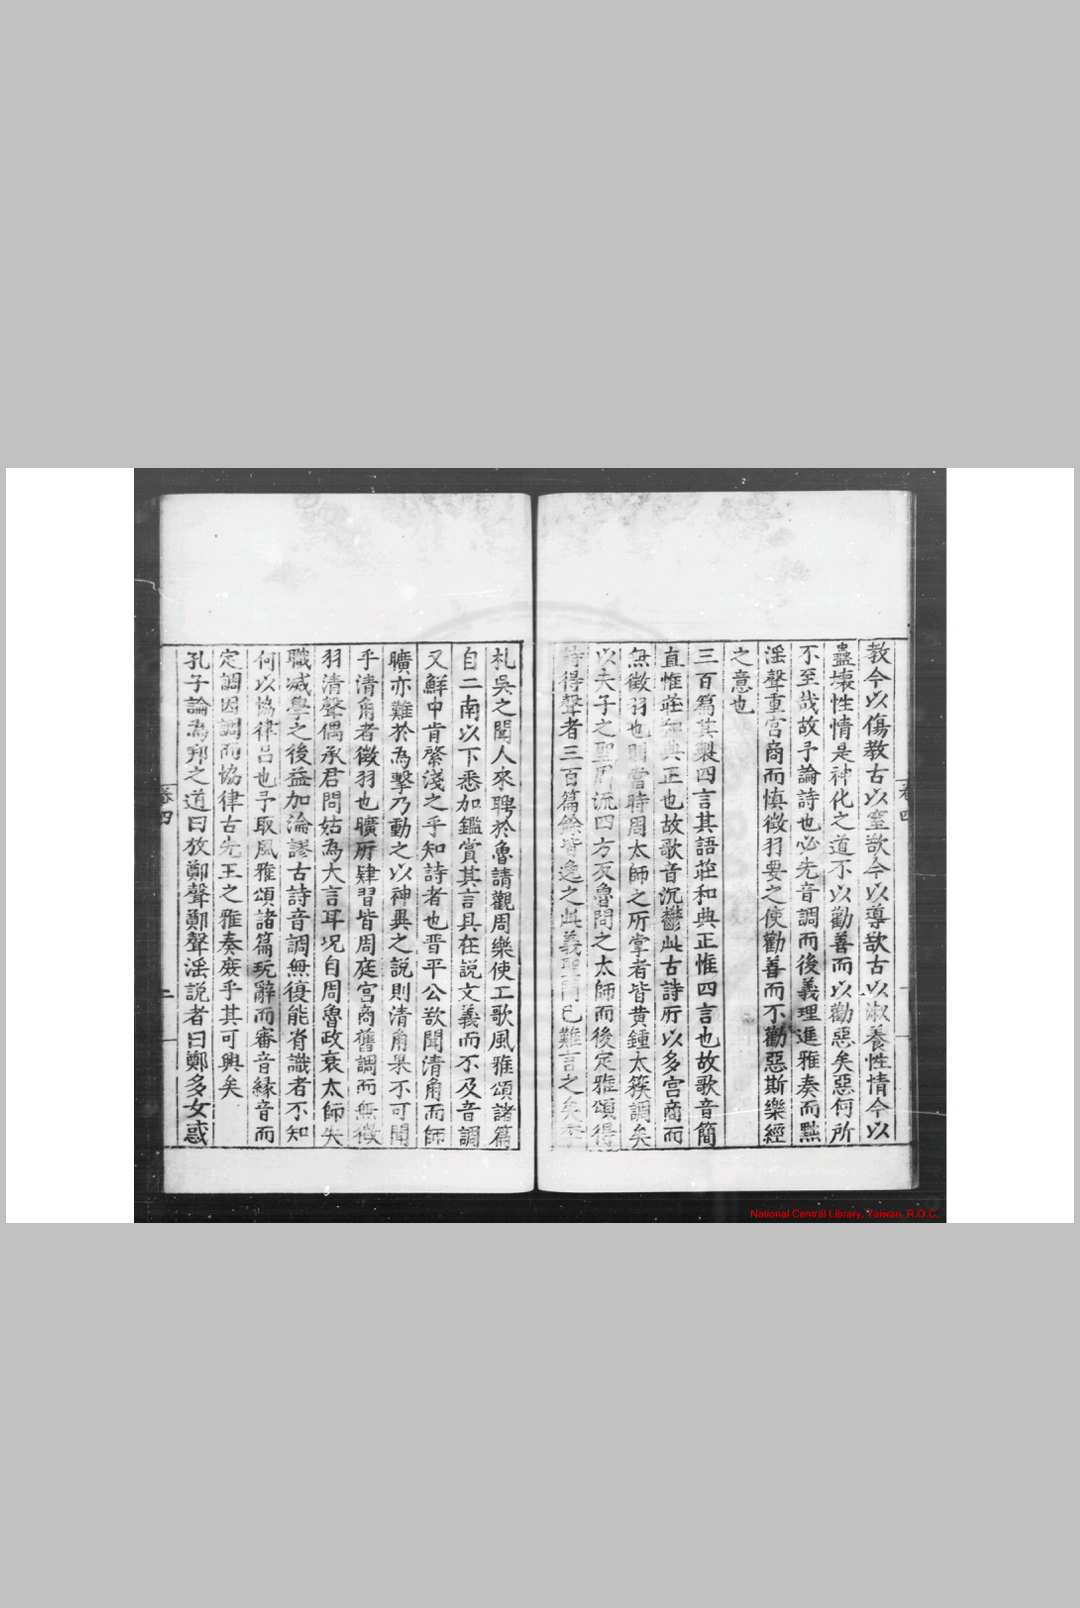 教今以傷教古以窒欲今以導欲古以淑養性情今以
蠱壞性情是神化之道不以勸善而以勸惡矣惡何所
不至哉故予論詩也必先音調而後義理進雅奏而黜
淫聲重宮商而慎徵羽要之使勸善而不勸惡斯樂經
之意也
三百篇其製四言其語莊和典正惟四言也故歌音簡
直惟莊和典正也故歌音沉鬱此古詩所以多宮商而
無徵羽也則當時周太師之所掌者皆黃鍾太簇調矣
以夫子之聖周流四方反魯問之太師而後定雅頌得
詩得聲者三百篇餘皆逸之此義聖門已難言之矣季
札吳之聞人來聘於魯請觀周樂使工歌風雅頌諸篇
自二南以下悉加鑑賞其言具在說文義而不及音調
又鮮中肯綮淺之乎知詩者也晋平公欲聞清角而師
曠亦難於為擊乃動之以神異之說則清角果不可聞
乎清角者徵羽也曠所肄習皆周庭宮商舊調而無徵
羽清聲偶承君問姑為大言耳况自周魯政衰太師失
職滅學之後益加淪謬古詩音調無復能肴識者不知
何以協律呂也予取風雅頌諸篇玩辭而審音緣音而
定調因調而協律古先王之雅奏庶乎其可興矣
孔子論為邦之道曰放鄭聲鄭聲淫說者曰鄭多女惑
卷四
二
卷四
National Central Library, Taiwan, R.O.C.